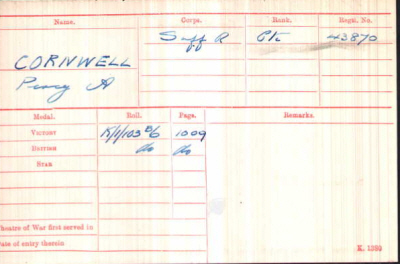 Name. Corps. Rank. Regtl. No.
CORNWELL Suff R Pte 43870
Percy A
Medal. Roll. Page. Remarks.
VICTORY K/1/103 B/6 1009
BRITISH do do
STAR
Theatre of War first served in
Date of entry therein
K. 1380